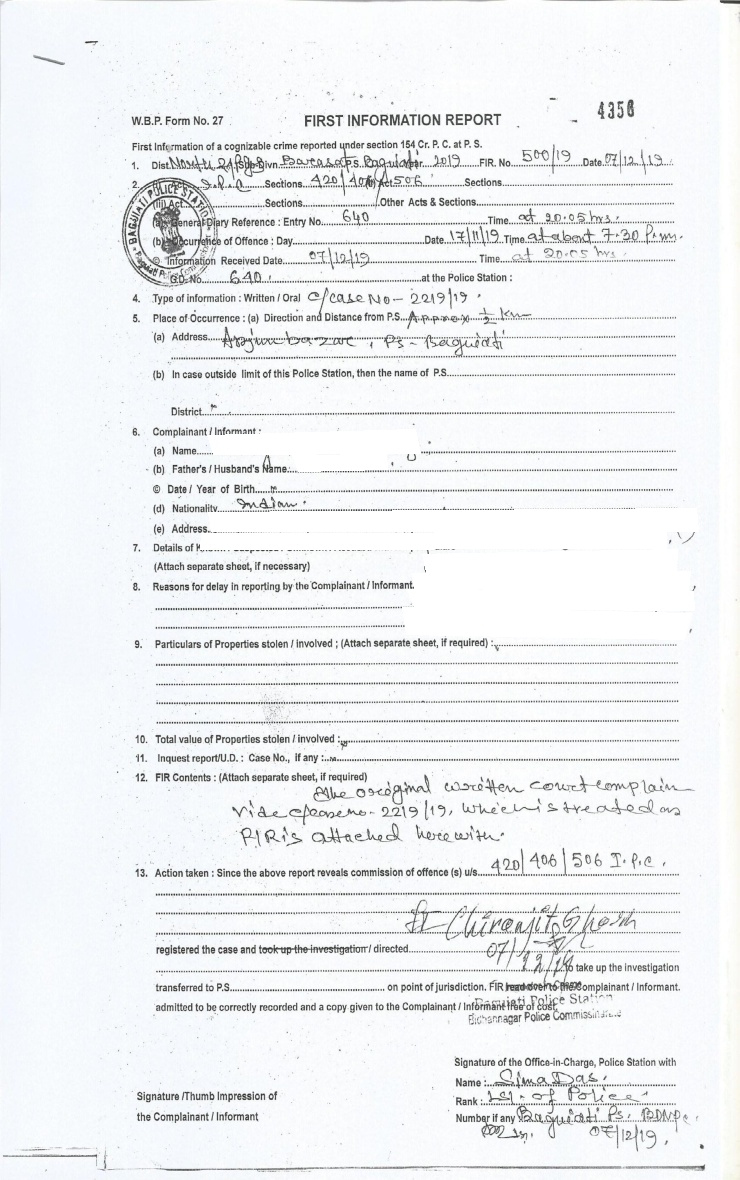 4356
W.B.P. Form No. 27 FIRST INFORMATION REPORT
First Information of a cognizable crime reported under section 154 Cr. P. C. at P. S.
1. Dist. North 24 Pgs Sub-Divn. Barasat P.S. Baguiati 2019 FIR. No. 500/19 Date 07/12/19
2. I.P.C Sections 420/406/506 Sections
(iii) Act Sections Other Acts & Sections
(a) General Diary Reference : Entry No. 640 Time at 20.05 hrs.
(b) Occurrence of Offence : Day Date 17/11/19 Time at about 7.30 P.m.
© Information Received Date 07/12/19 Time at 20.05 hrs
G.D. No. 640. at the Police Station :
BAGUIATI POLICE STATION
4. Type of information : Written / Oral C/case No - 2219/19.
5. Place of Occurrence : (a) Direction and Distance from P.S. Approx ½ km
(a) Address Arjunbazar, Ps - Baguiati
(b) In case outside limit of this Police Station, then the name of P.S.
District
6. Complainant / Informant :
(a) Name
(b) Father's / Husband's Name
© Date / Year of Birth
(d) Nationality Indian.
(e) Address
7. Details of
(Attach separate sheet, if necessary)
8. Reasons for delay in reporting by the Complainant / Informant.
9. Particulars of Properties stolen / involved ; (Attach separate sheet, if required) :
10. Total value of Properties stolen / involved :
11. Inquest report/U.D. : Case No., if any :
12. FIR Contents : (Attach separate sheet, if required)
The original written court complain
vide c/case no- 2219/19, which is treated as
FIR is attached herewith.
13. Action taken : Since the above report reveals commission of offence (s) u/s. 420/406/506 I.P.C.
registered the case and took up the investigation / directed SI Chiranjit Ghosh
07/12/19
to take up the investigation
transferred to P.S. on point of jurisdiction. FIR read over to the Complainant / Informant.
admitted to be correctly recorded and a copy given to the Complainant / Informant free of cost.
Baguiati Police Station
Bidhannagar Police Commissionerate
Signature of the Office-in-Charge, Police Station with
Name : Sima Das.
Signature /Thumb Impression of Rank : of Police
the Complainant / Informant Number if any Baguiati Ps. BDNPC
07/12/19.